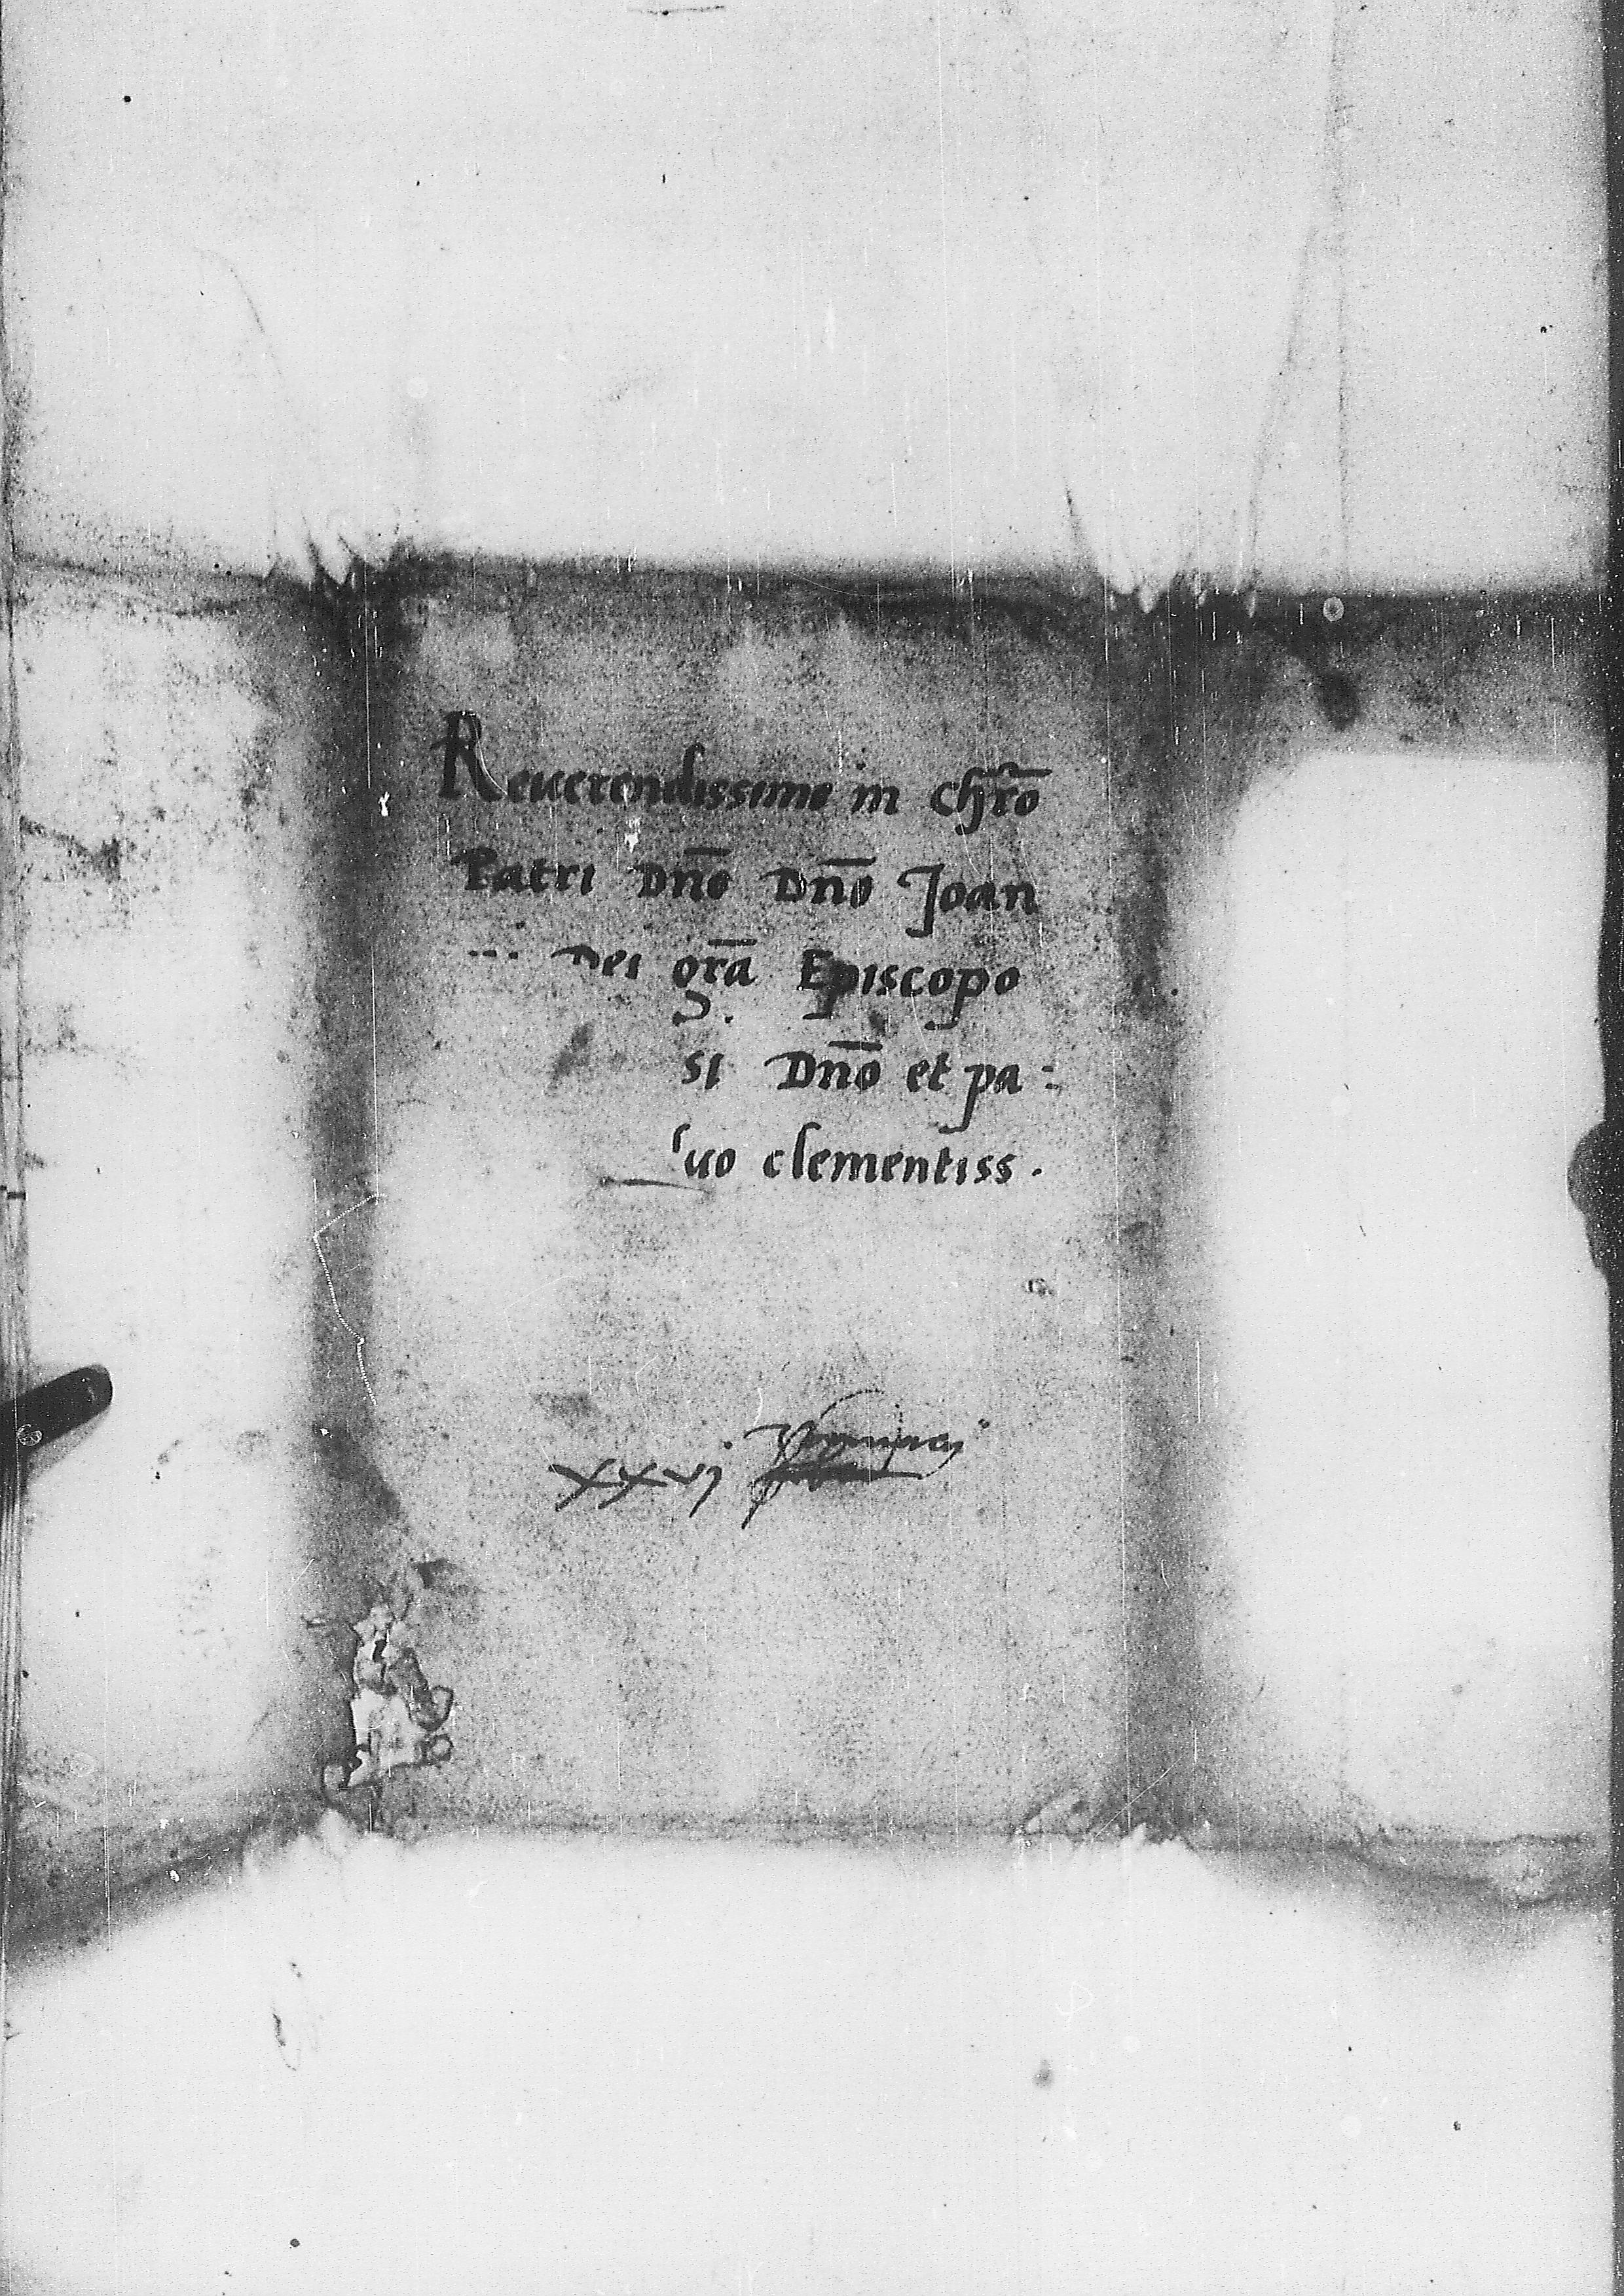 Reuerendissimo in chr̄o
Patri Dn̄o Dn̄o Joan
Dei gr̄a Episcopo
si Dn̄o et pa:
uo clementiss.
xxvj